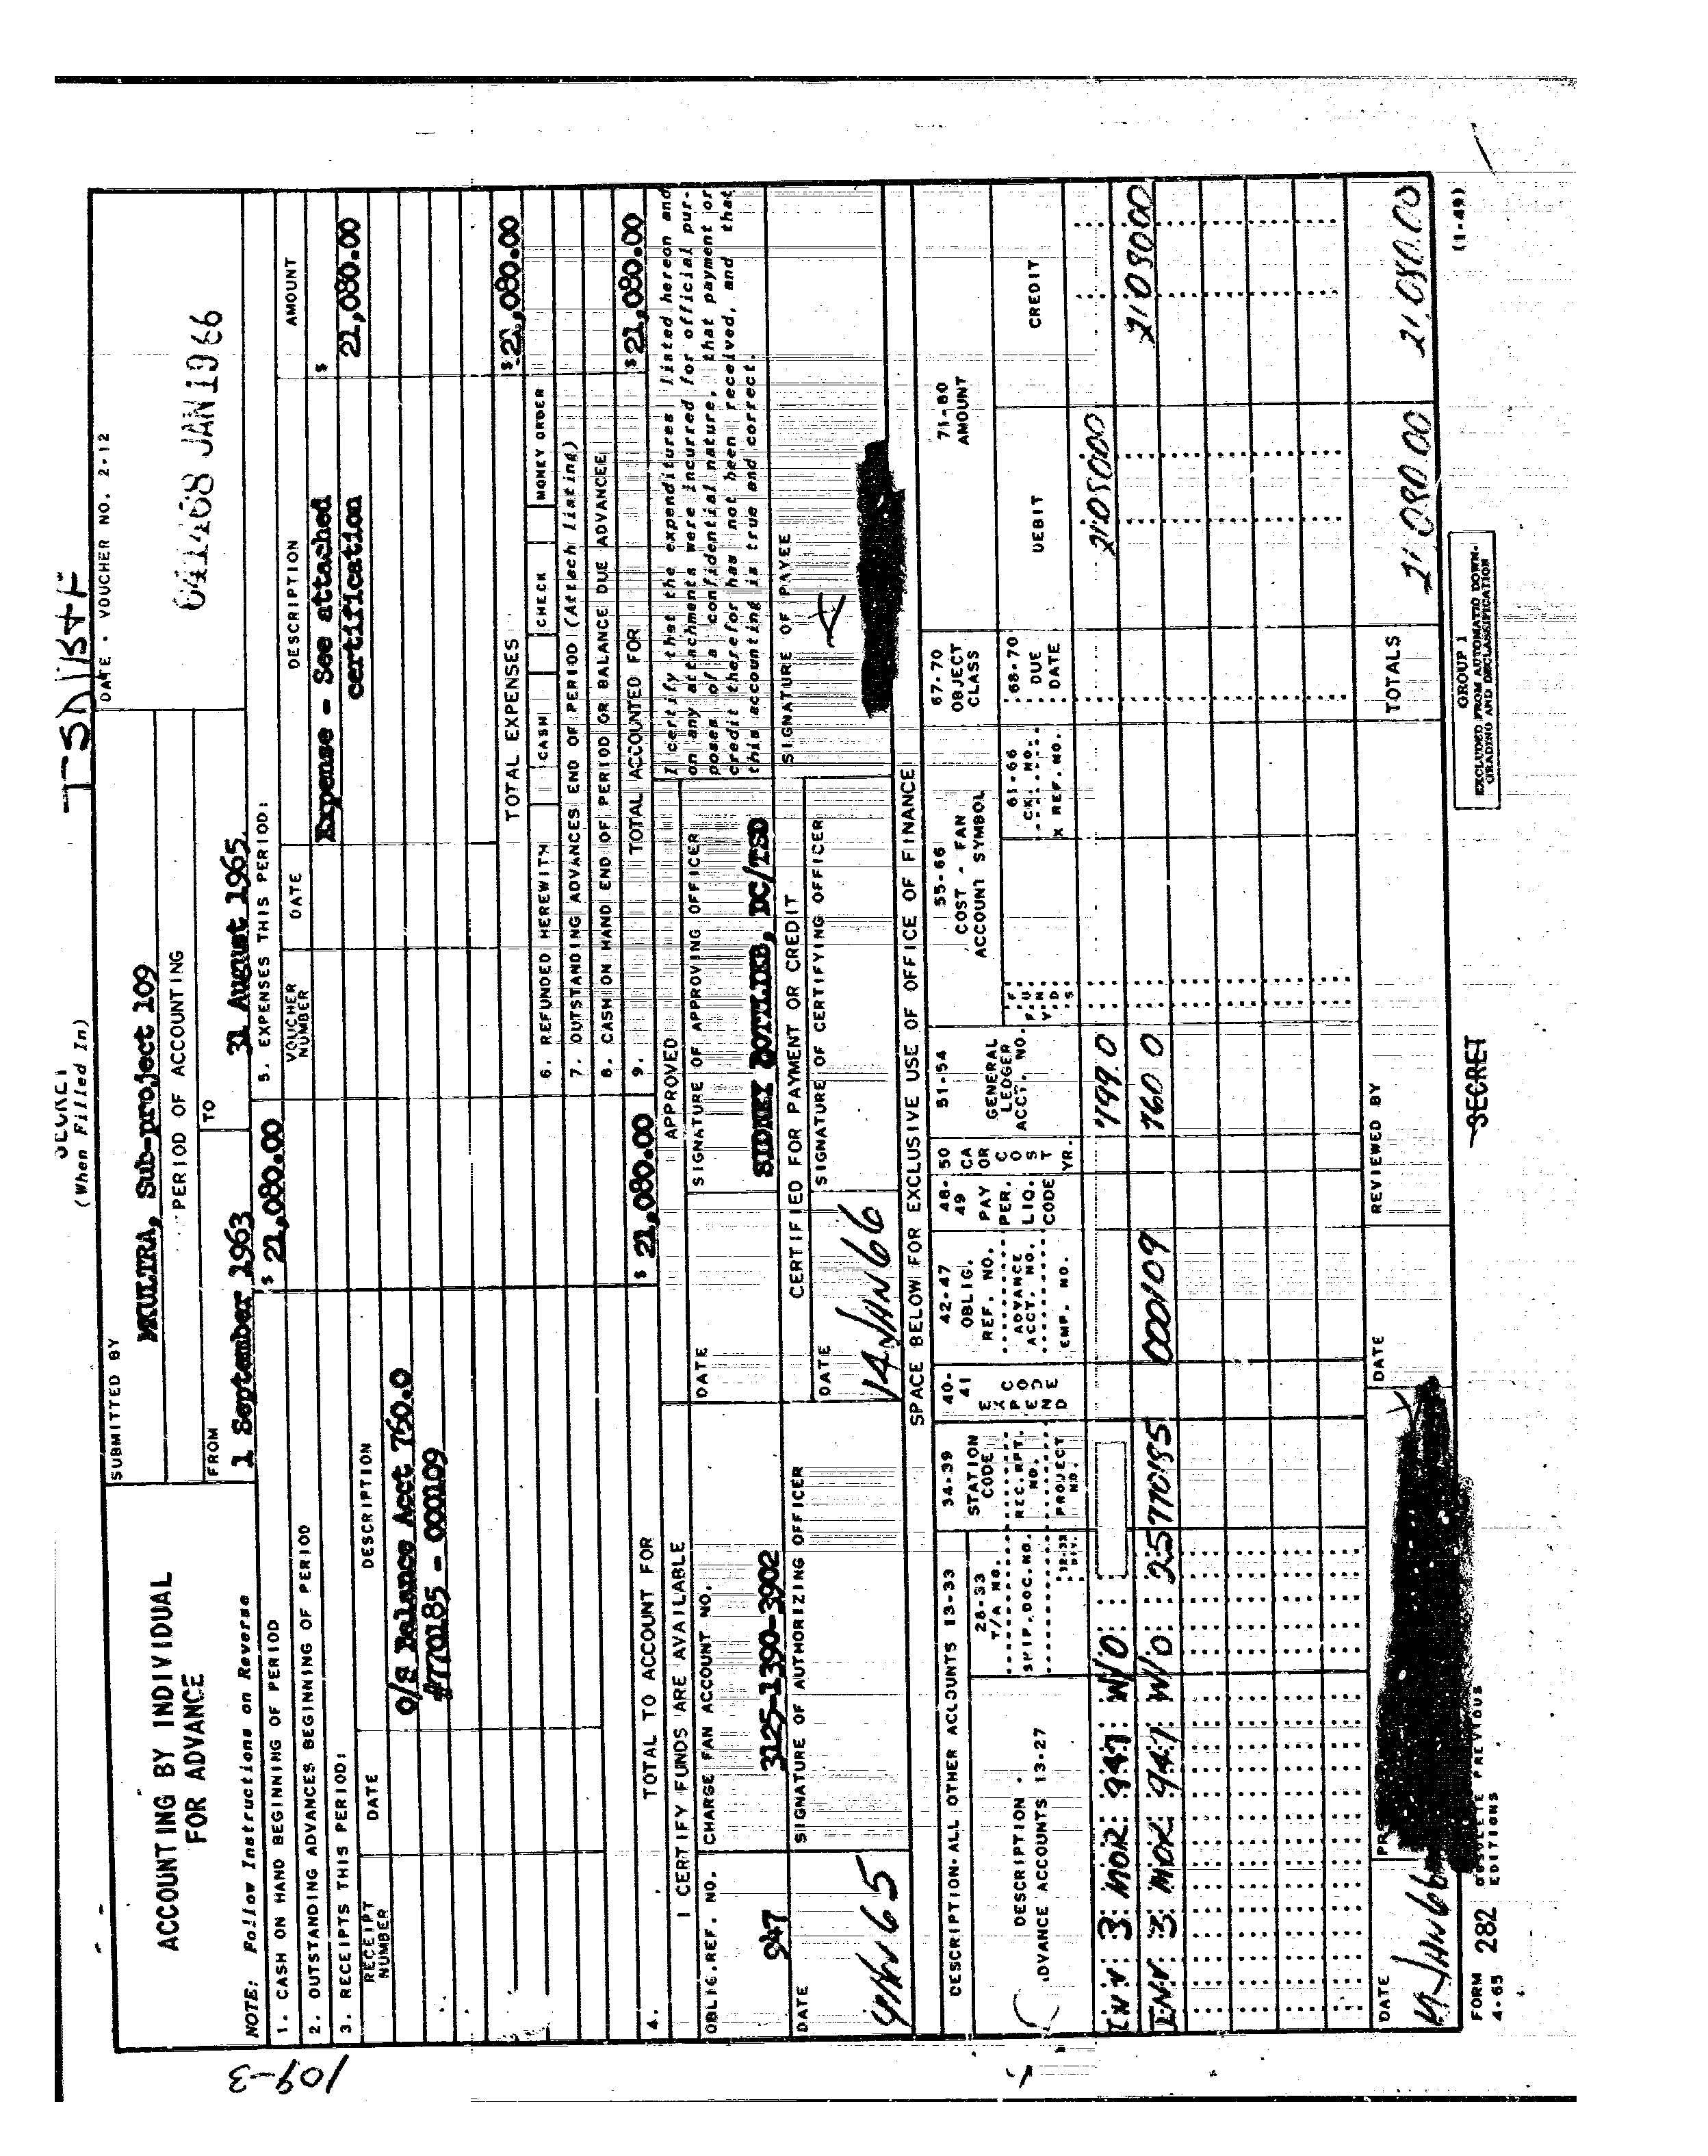 SECRET
(When Filled In)
ACCOUNTING BY INDIVIDUAL
FOR ADVANCE
SUBMITTED BY
MKULTRA, Sub-project 109
PERIOD OF ACCOUNTING
FROM
1 September 1963
TO
31 August 1965
DATE - VOUCHER NO. 2-12
JAN 1966
NOTE: Follow Instructions on Reverse
1. CASH ON HAND BEGINNING OF PERIOD
$ 21,080.00
2. OUTSTANDING ADVANCES BEGINNING OF PERIOD
3. RECEIPTS THIS PERIOD:
RECEIPT NUMBER
DATE
DESCRIPTION
O/S Balance Acct 760.0
#770185 - 000109
5. EXPENSES THIS PERIOD:
VOUCHER NUMBER
DATE
DESCRIPTION
AMOUNT
Expense - See attached
certification
$ 21,080.00
TOTAL EXPENSES
$ 21,080.00
6. REFUNDED HEREWITH
CASH
CHECK
MONEY ORDER
7. OUTSTANDING ADVANCES END OF PERIOD (Attach listing)
8. CASH ON HAND END OF PERIOD OR BALANCE DUE ADVANCEE
4. TOTAL TO ACCOUNT FOR
$ 21,080.00
9. TOTAL ACCOUNTED FOR
$ 21,080.00
I CERTIFY FUNDS ARE AVAILABLE
OBLIG. REF. NO.
947
CHARGE FAN ACCOUNT NO.
3125-1390-3902
DATE
SIGNATURE OF AUTHORIZING OFFICER
APPROVED
DATE
SIGNATURE OF APPROVING OFFICER
SIDNEY GOTTLIEB, DC/TSD
CERTIFIED FOR PAYMENT OR CREDIT
DATE
14 JAN 66
SIGNATURE OF CERTIFYING OFFICER
I certify that the expenditures listed hereon and
on any attachments were incurred for official pur-
poses of a confidential nature, that payment or
credit therefor has not been received, and that
this accounting is true and correct.
SIGNATURE OF PAYEE
SPACE BELOW FOR EXCLUSIVE USE OF OFFICE OF FINANCE
DESCRIPTION-ALL OTHER ACCOUNTS 13-33
DESCRIPTION -
ADVANCE ACCOUNTS 13-27
28-33
T/A NO.
SHIP. DOC. NO.
34-39
STATION
CODE
REC. RPT.
NO.
PROJECT
NO.
40-41
EXPEND
CODE
42-47
OBLIG.
REF. NO.
ADVANCE
ACCT. NO.
EMP. NO.
48-49
PAY
PER.
LIQ.
CODE
50
CA
OR
COST
YR.
51-54
GENERAL
LEDGER
ACCT. NO.
55-66
COST - FAN
ACCOUNT SYMBOL
61-66
CK. NO.
X REF. NO.
67-70
OBJECT
CLASS
68-70
DUE
DATE
71-80
AMOUNT
DEBIT
CREDIT
INV 3 MOR 947 W/O
INV 3 MOR 947 W/O
000109
760 0
TOTALS
21 080.00
21,080.00
DATE
DATE
REVIEWED BY
FORM 282 OBSOLETE PREVIOUS
4-65 EDITIONS
SECRET
GROUP 1
EXCLUDED FROM AUTOMATIC DOWN-
GRADING AND DECLASSIFICATION
(1-49)
109-3